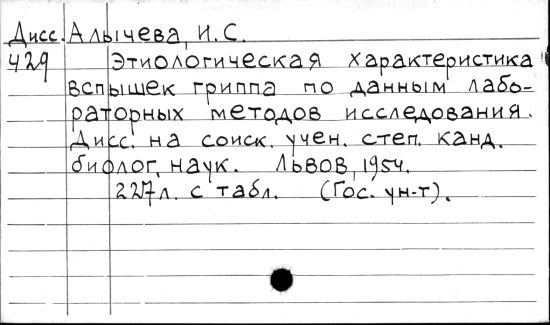 Дисс. Алычева, И.С.
429 Этиологическая характеристика
вспышек гриппа по данным лабо-
раторных методов исследования.
Дисс. на соиск. учен. степ. канд.
биолог. наук. Львов, 1954.
227л. с табл. (Гос. ун-т).